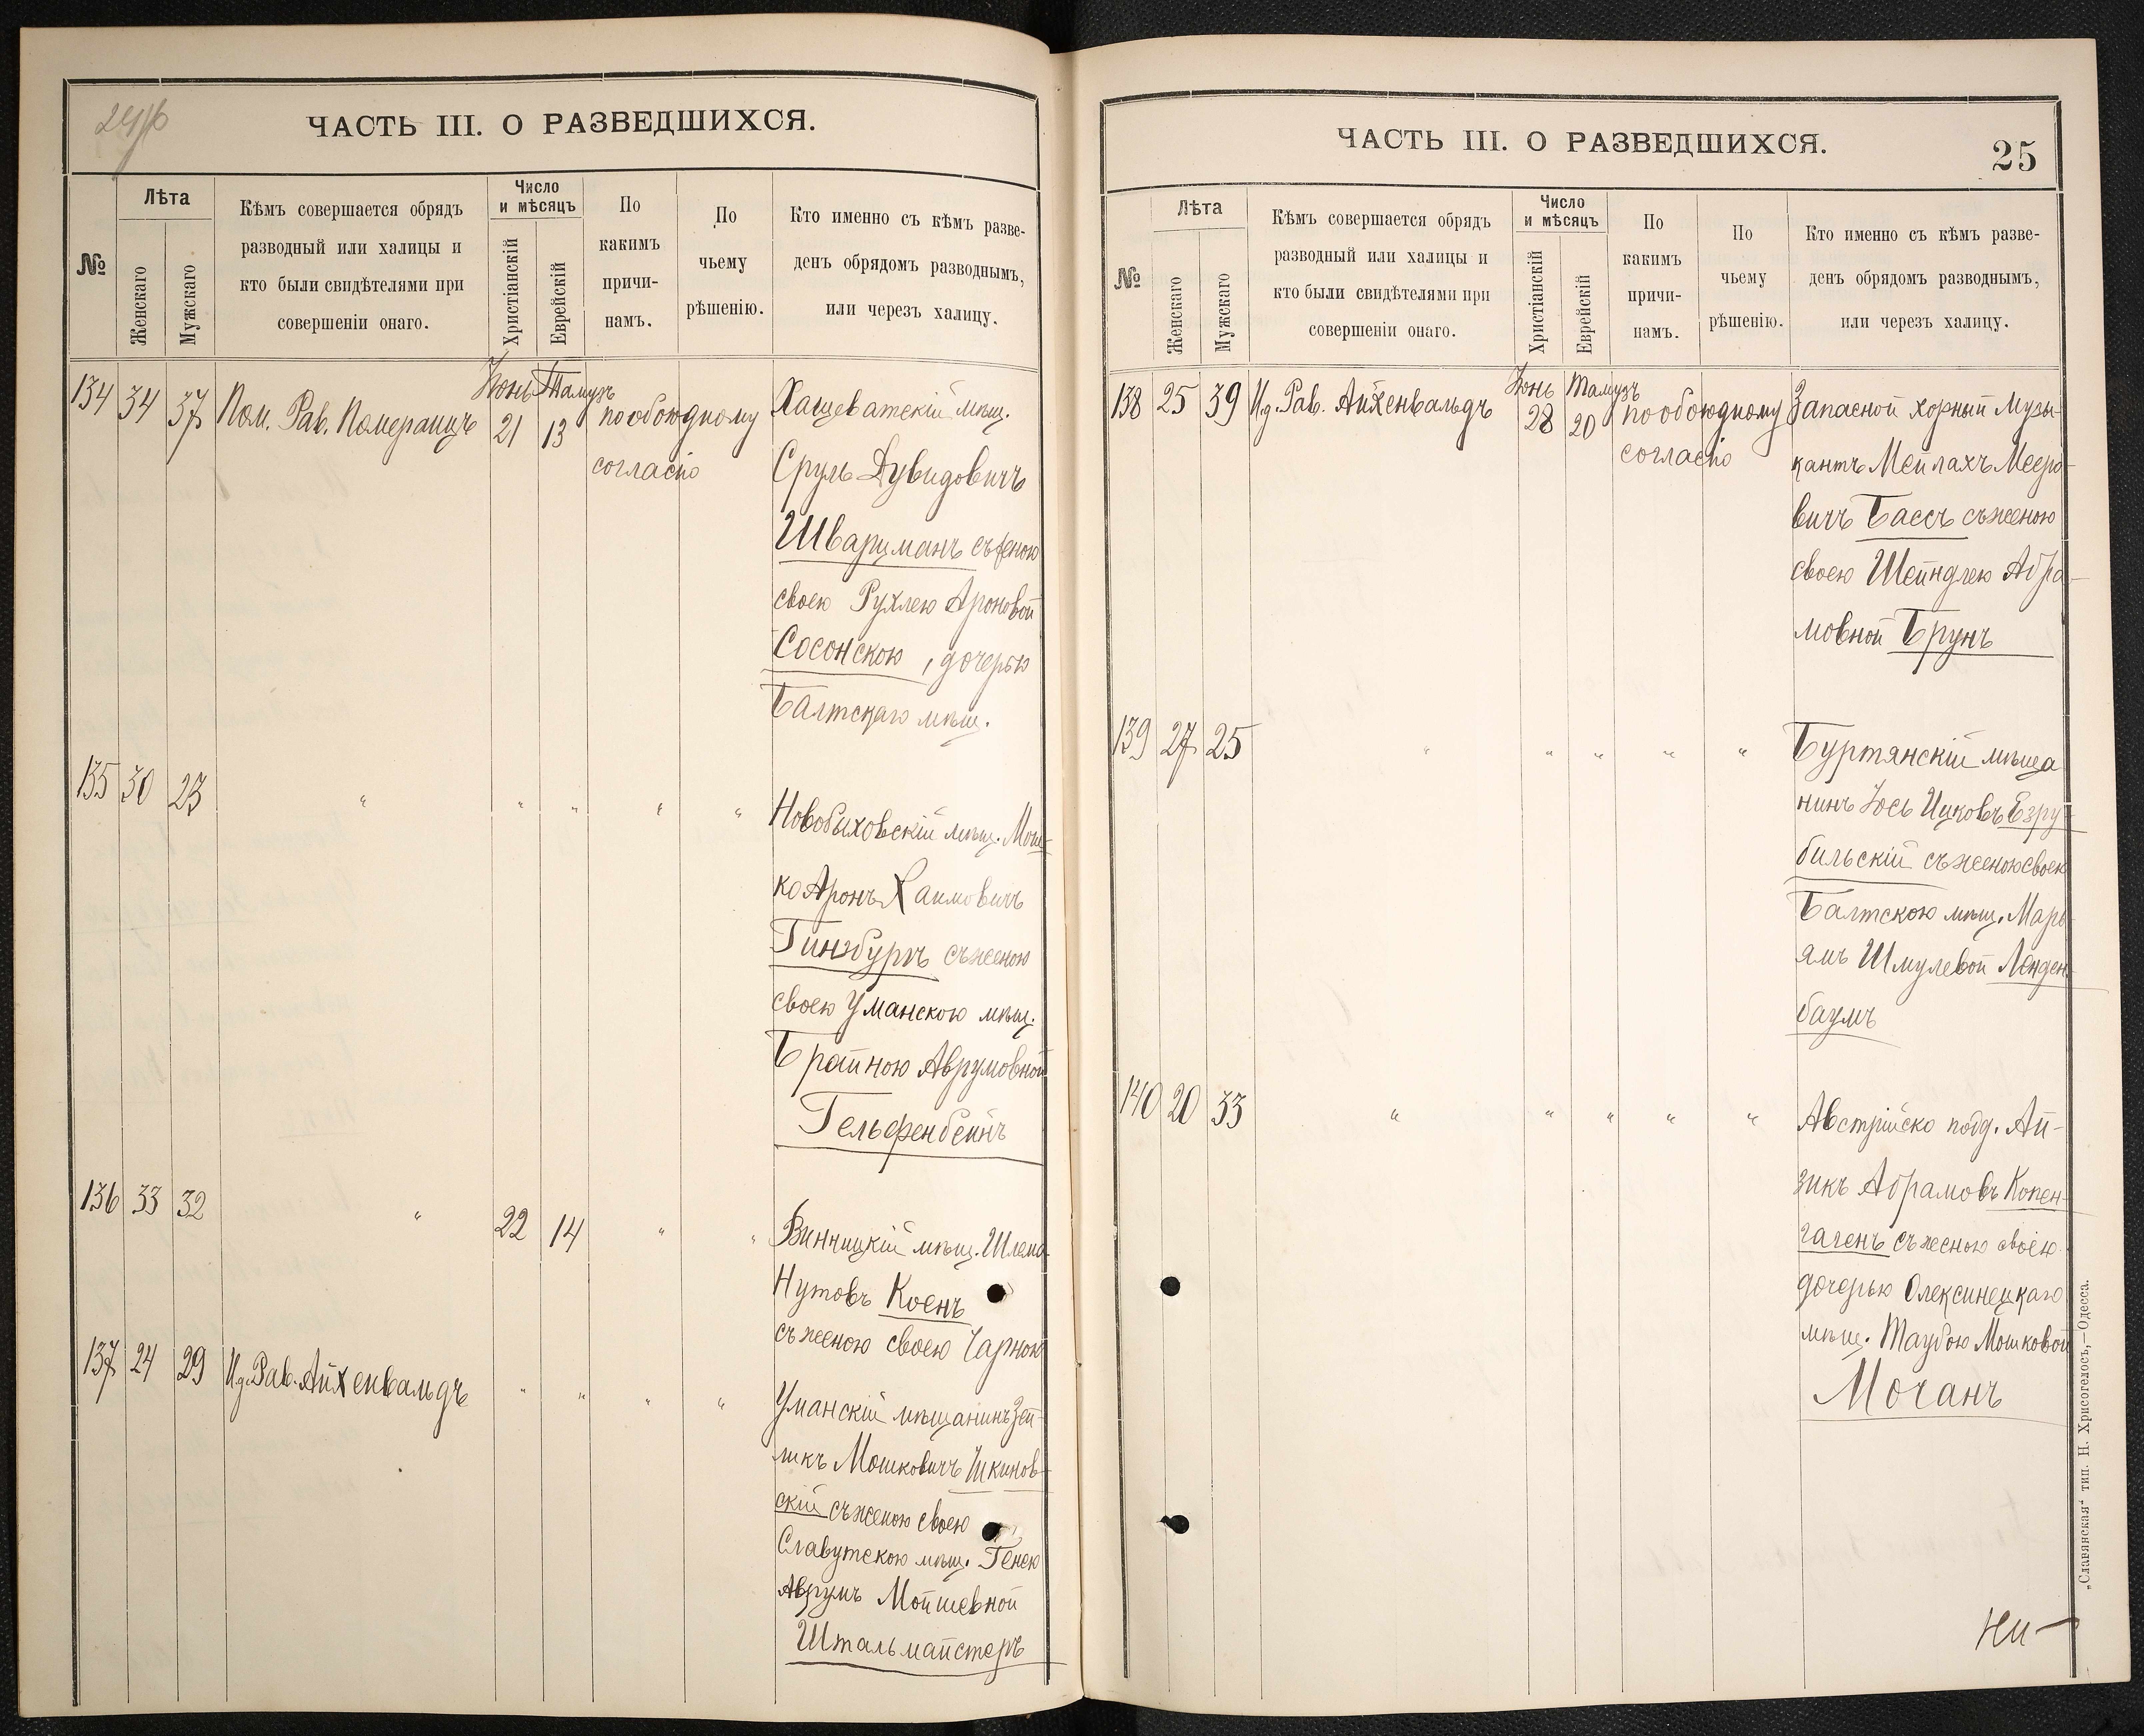 ЧАСТЬ III. О РАЗВЕДШИХСЯ.
№
Лѣта
Женскаго
Мужскаго
Кѣмъ совершается обрядъ
разводный или халицы и
кто были свидѣтелями при
совершеніи онаго.
Число
и мѣсяцъ
Христіанскій
Еврейскій
По
какимъ
причи-
намъ.
По
чьему
рѣшенію.
Кто именно съ кѣмъ разве-
денъ обрядомъ разводнымъ,
или через халицу.
Іюнь Тамузъ
134 34 37 Пом. Рав. Померанцъ 21 13 по обоюдному Хащеватскій мѣщ.
согласію Сруль Дувидовичъ
Шварцманъ съ женою
своею Рухлею Ароновой
Сосонскою, дочерью
Балтскаго мѣщ.
135 30 23 " " " " " Новобыховскій мѣщ. Мош-
ко Аронъ Хаимовичъ
Гинзбургъ съ женою
своею Уманскою мѣщ.
Брайною Аврумовной
Гельфенбейнъ
136 33 32 " 22 14 " " Винницкій мѣщ. Шлема
Нутовъ Коенъ
съ женою своею Чарною
137 24 29 И.д. Рав. Айхенвальдъ " " " " Уманскій мѣщанинъ Зей-
ликъ Мошковичъ Шкинов-
скій съ женою своею
Славутскою мѣщ. Генею
Аврумъ Мойшевной
Штальмайстеръ
ЧАСТЬ III. О РАЗВЕДШИХСЯ.
25
№
Лѣта
Женскаго
Мужскаго
Кѣмъ совершается обрядъ
разводный или халицы и
кто были свидѣтелями при
совершеніи онаго.
Число
и мѣсяцъ
Христіанскій
Еврейскій
По
какимъ
причи-
намъ.
По
чьему
рѣшенію.
Кто именно съ кѣмъ разве-
денъ обрядомъ разводнымъ,
или черезъ халицу.
Іюнь Тамузъ
138 25 39 И.д. Рав. Айхенвальдъ 28 20 по обоюдному Запасной хорный Музы-
согласію кантъ Мейлахъ Мееро-
вичъ Бассъ съ женою
своею Шейндлею Абра-
мовной Брунъ
139 27 25 " " " " " Буртянскій мѣща
нинъ Іось Ицковъ Езру-
бильскій съ женою своею
Балтскою мѣщ. Марь
ямъ Шмулевой Ленден-
баумъ
140 20 33 " " " " " Австрійско подд. Ай-
зикъ Абрамовъ Копен-
гагенъ съ женою своею
дочерью Олексинецкаго
мѣщ. Таубою Мошковой
Мочанъ
„Славянская“ тип. Н. Хрисогелосъ,—Одесса.